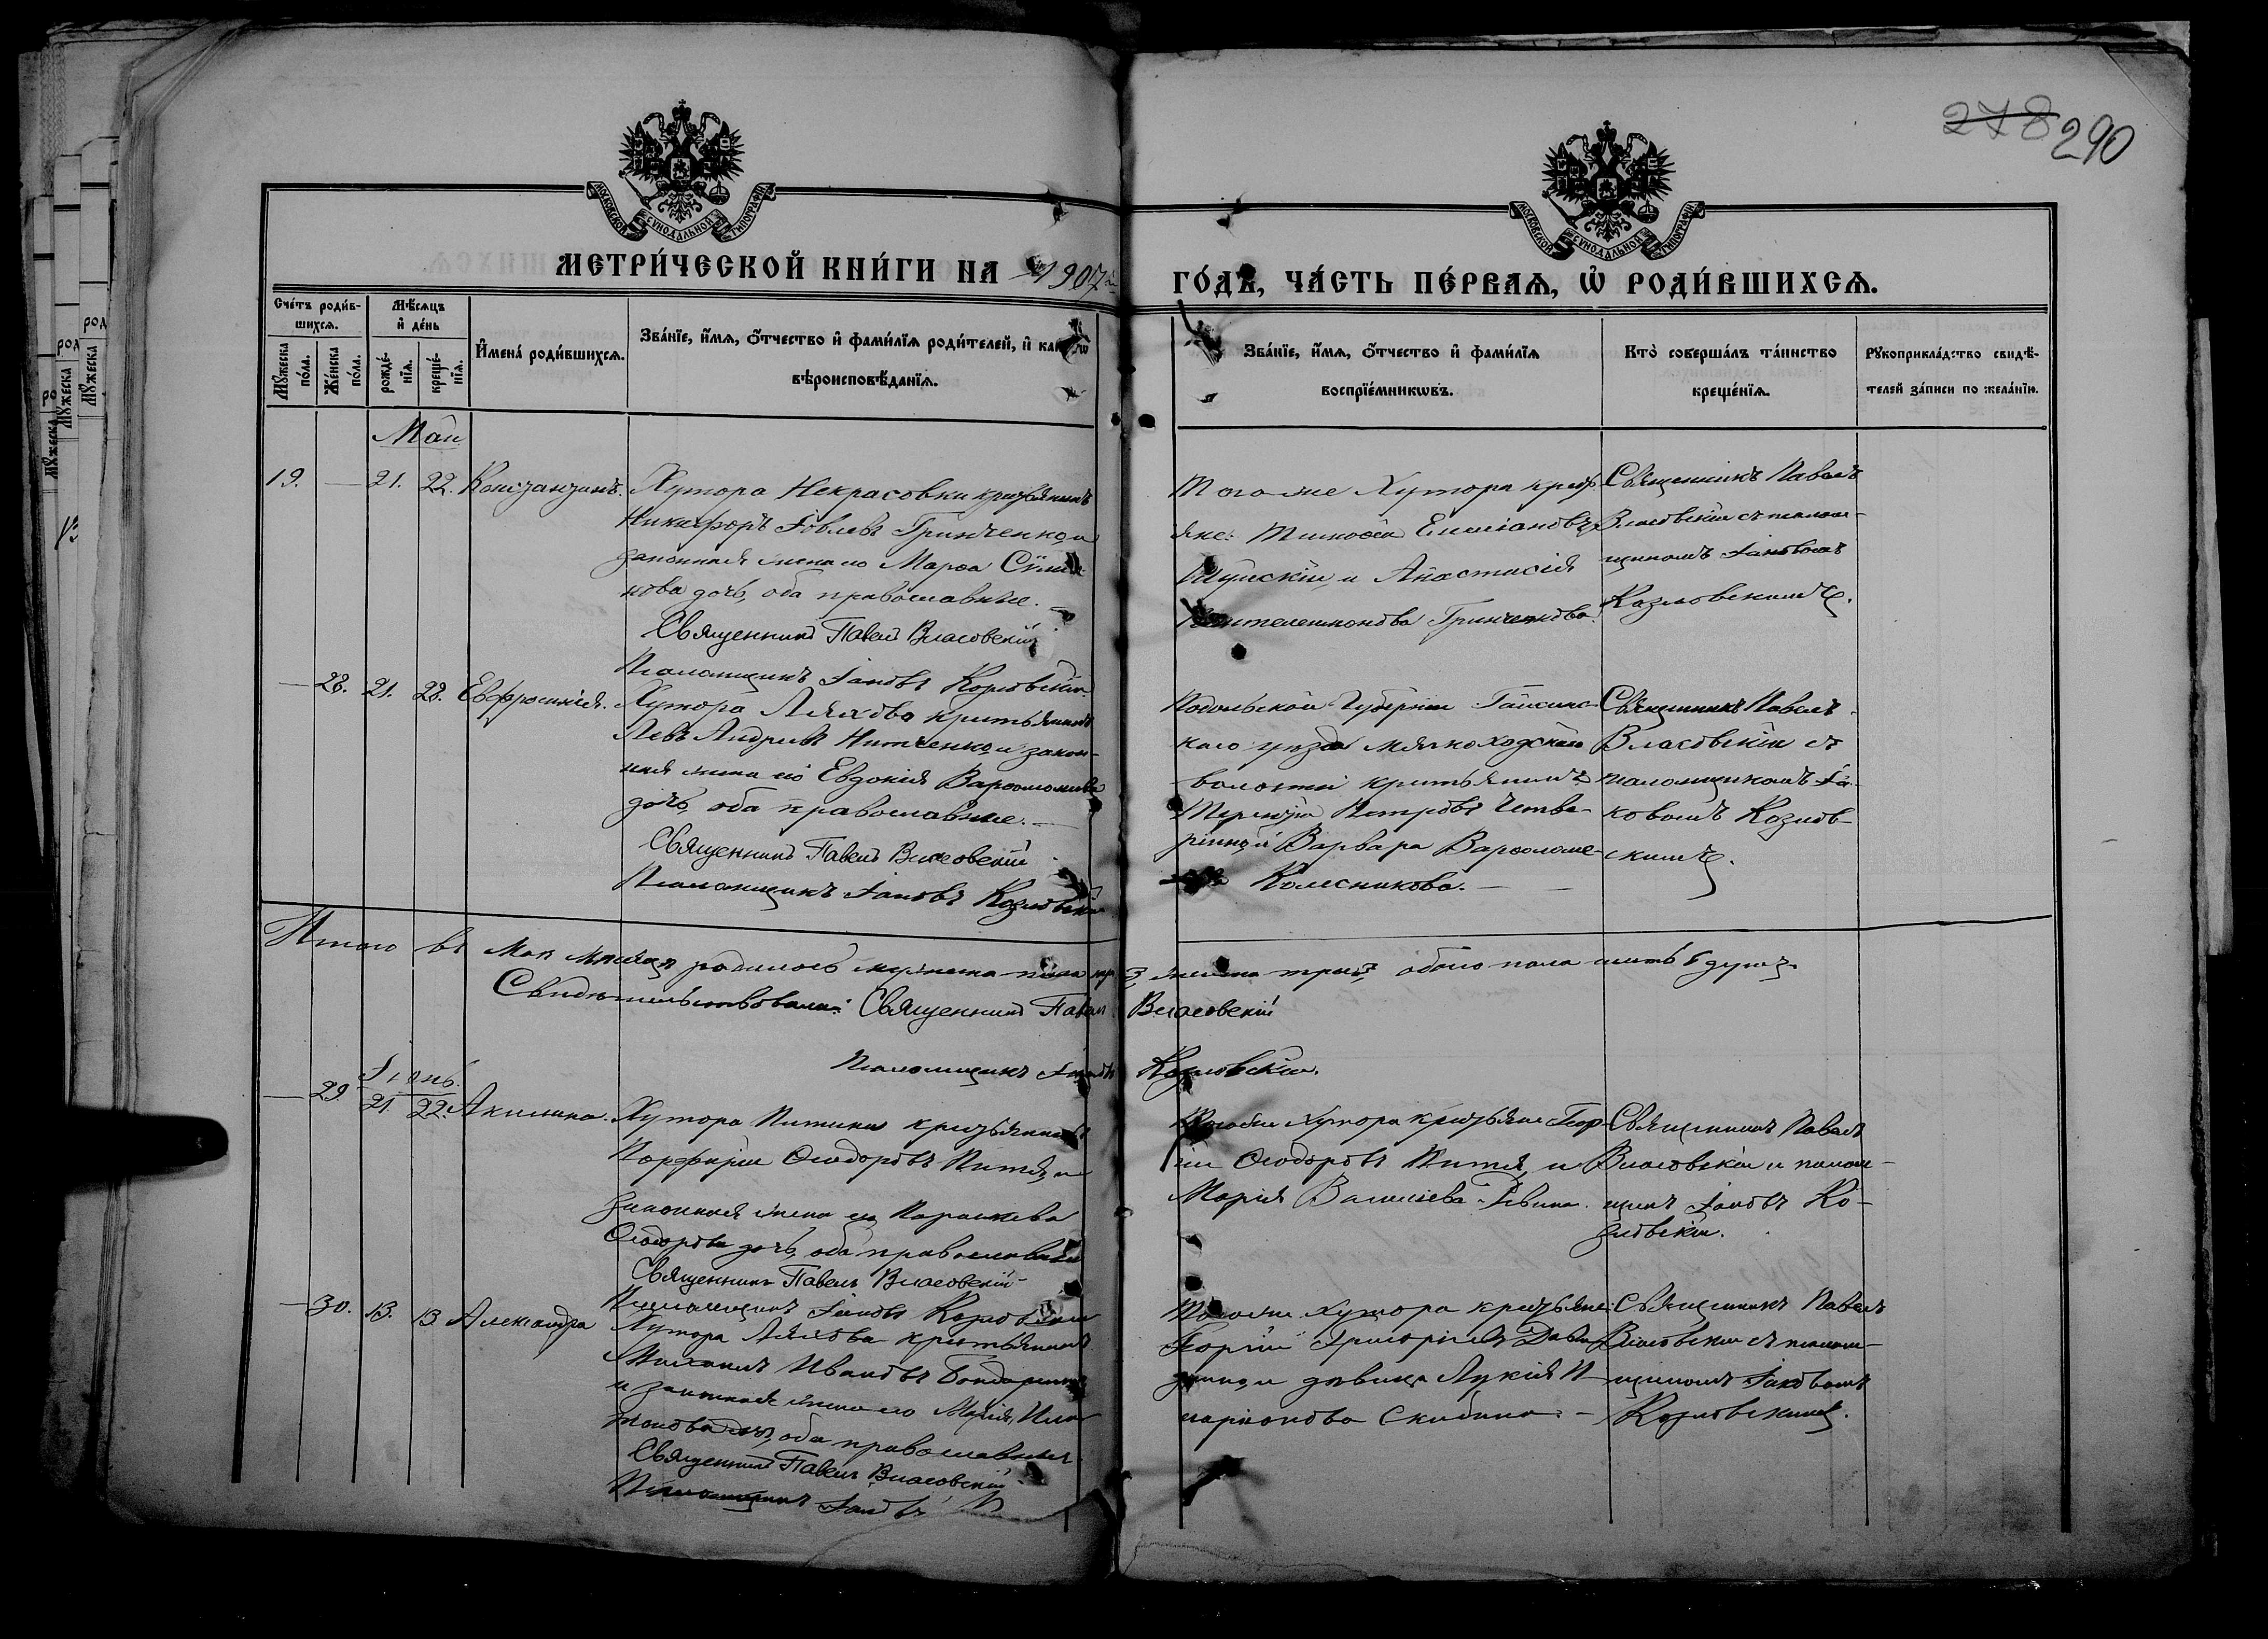 278 290
МОСКОВСКОЙ СѴНОДАЛЬНОЙ ТИПОГРАФІИ
МОСКОВСКОЙ СѴНОДАЛЬНОЙ ТИПОГРАФІИ
МЕТРИ́ЧЕСКОЙ КНИ́ГИ НА 1907
ГО́ДЪ, ЧА́СТЬ ПЕ́РВАѦ, Ѡ҆ РОДИ́ВШИХСѦ.
Сче́тъ роди́в-
шихсѧ.
Мѣ́сѧцъ
и҆ де́нь
Мꙋ́жеска по́ла.
Же́нска по́ла.
рожде́-
нїѧ.
креще́-
нїѧ.
И҆мена̀ роди́вшихсѧ.
Зва́нїе, и҆́мѧ, ѻ҆́тчество и҆ фами́лїѧ роди́телей, и҆
вѣроисповѣ́данїѧ.
Зва́нїе, и҆́мѧ, ѻ҆́тчество и҆ фами́лїѧ
воспрїе́мникѡвъ.
Кто̀ соверша́лъ та́инство
креще́нїѧ.
Рꙋкоприкла́дство свидѣ́-
телей за́писи по жела́нїю.
Май
19. — 21. 22. Константинъ.
Хутора Некрасовки крестьянинъ
Никифоръ Іовлевъ Гринченко, и
законная жена его Марѳа
дочь, оба православные.
Священникъ Павелъ Власовскій
Псаломщикъ Іаковъ Козловскій
Того же Хутора крест
яне: Тимоѳей Емиліановъ
и Анастасія
Гринченкова.
Священникъ Павелъ
Власовскій съ псалом-
щикомъ Іаковомъ
Козловскимъ.
— 28. 21. 22. Евфросинія.
Хутора Ляхова крестьянинъ
Левъ Андреевъ Нитченко, и закон-
ная жена его Евдокія Варѳоломеева
дочь, оба православные. —
Священникъ Павелъ Власовскій
Псаломщикъ Іаковъ Козловскій
Подольской Губерніи Гайсинс-
каго уѣзда Мягкоходскаго
волости крестьянинъ
Терентій Петровъ Четве-
рикъ, и Варвара Варѳоломе-
Колесникова. —
Священникъ Павелъ
Власовскій съ
псаломщикомъ Іа-
ковомъ Козлов-
скимъ.
Итого въ Маѣ мѣсяцѣ родилось мужеска пола три
3 женска три 3, обоего пола шесть 6 душъ.
Свидѣтельствовали: Священникъ Павелъ Власовскій
Псаломщикъ Іаковъ Козловскій.
Іюнь.
— 29 21 22. Акилина.
Хутора крестьянинъ
Порфирій Ѳеодоровъ
законная жена его Параскева
Ѳеодорова дочь, оба православные
Священникъ Павелъ Власовскій
Псаломщикъ Іаковъ Козловскій
Того же Хутора крестьяне: Геор-
гій Ѳеодоровъ и
Марія Василіева
Священникъ Павелъ
Власовскій и псалом-
щикъ Іаковъ Ко-
зловскій.
— 30. 13. 13 Александра
Хутора Ляхова крестьянинъ
Михаилъ Ивановъ
и законная жена его Марія
дочь, оба православные
Священникъ Павелъ Власовскій
Псаломщикъ Іаковъ
Того же хутора крестьяне:
Георгій Григоріевъ
и дѣвица Лукія И-
ларіонова Скибина. —
Священникъ Павелъ
Власовскій съ псалом-
щикомъ Іаковомъ
Козловскимъ.